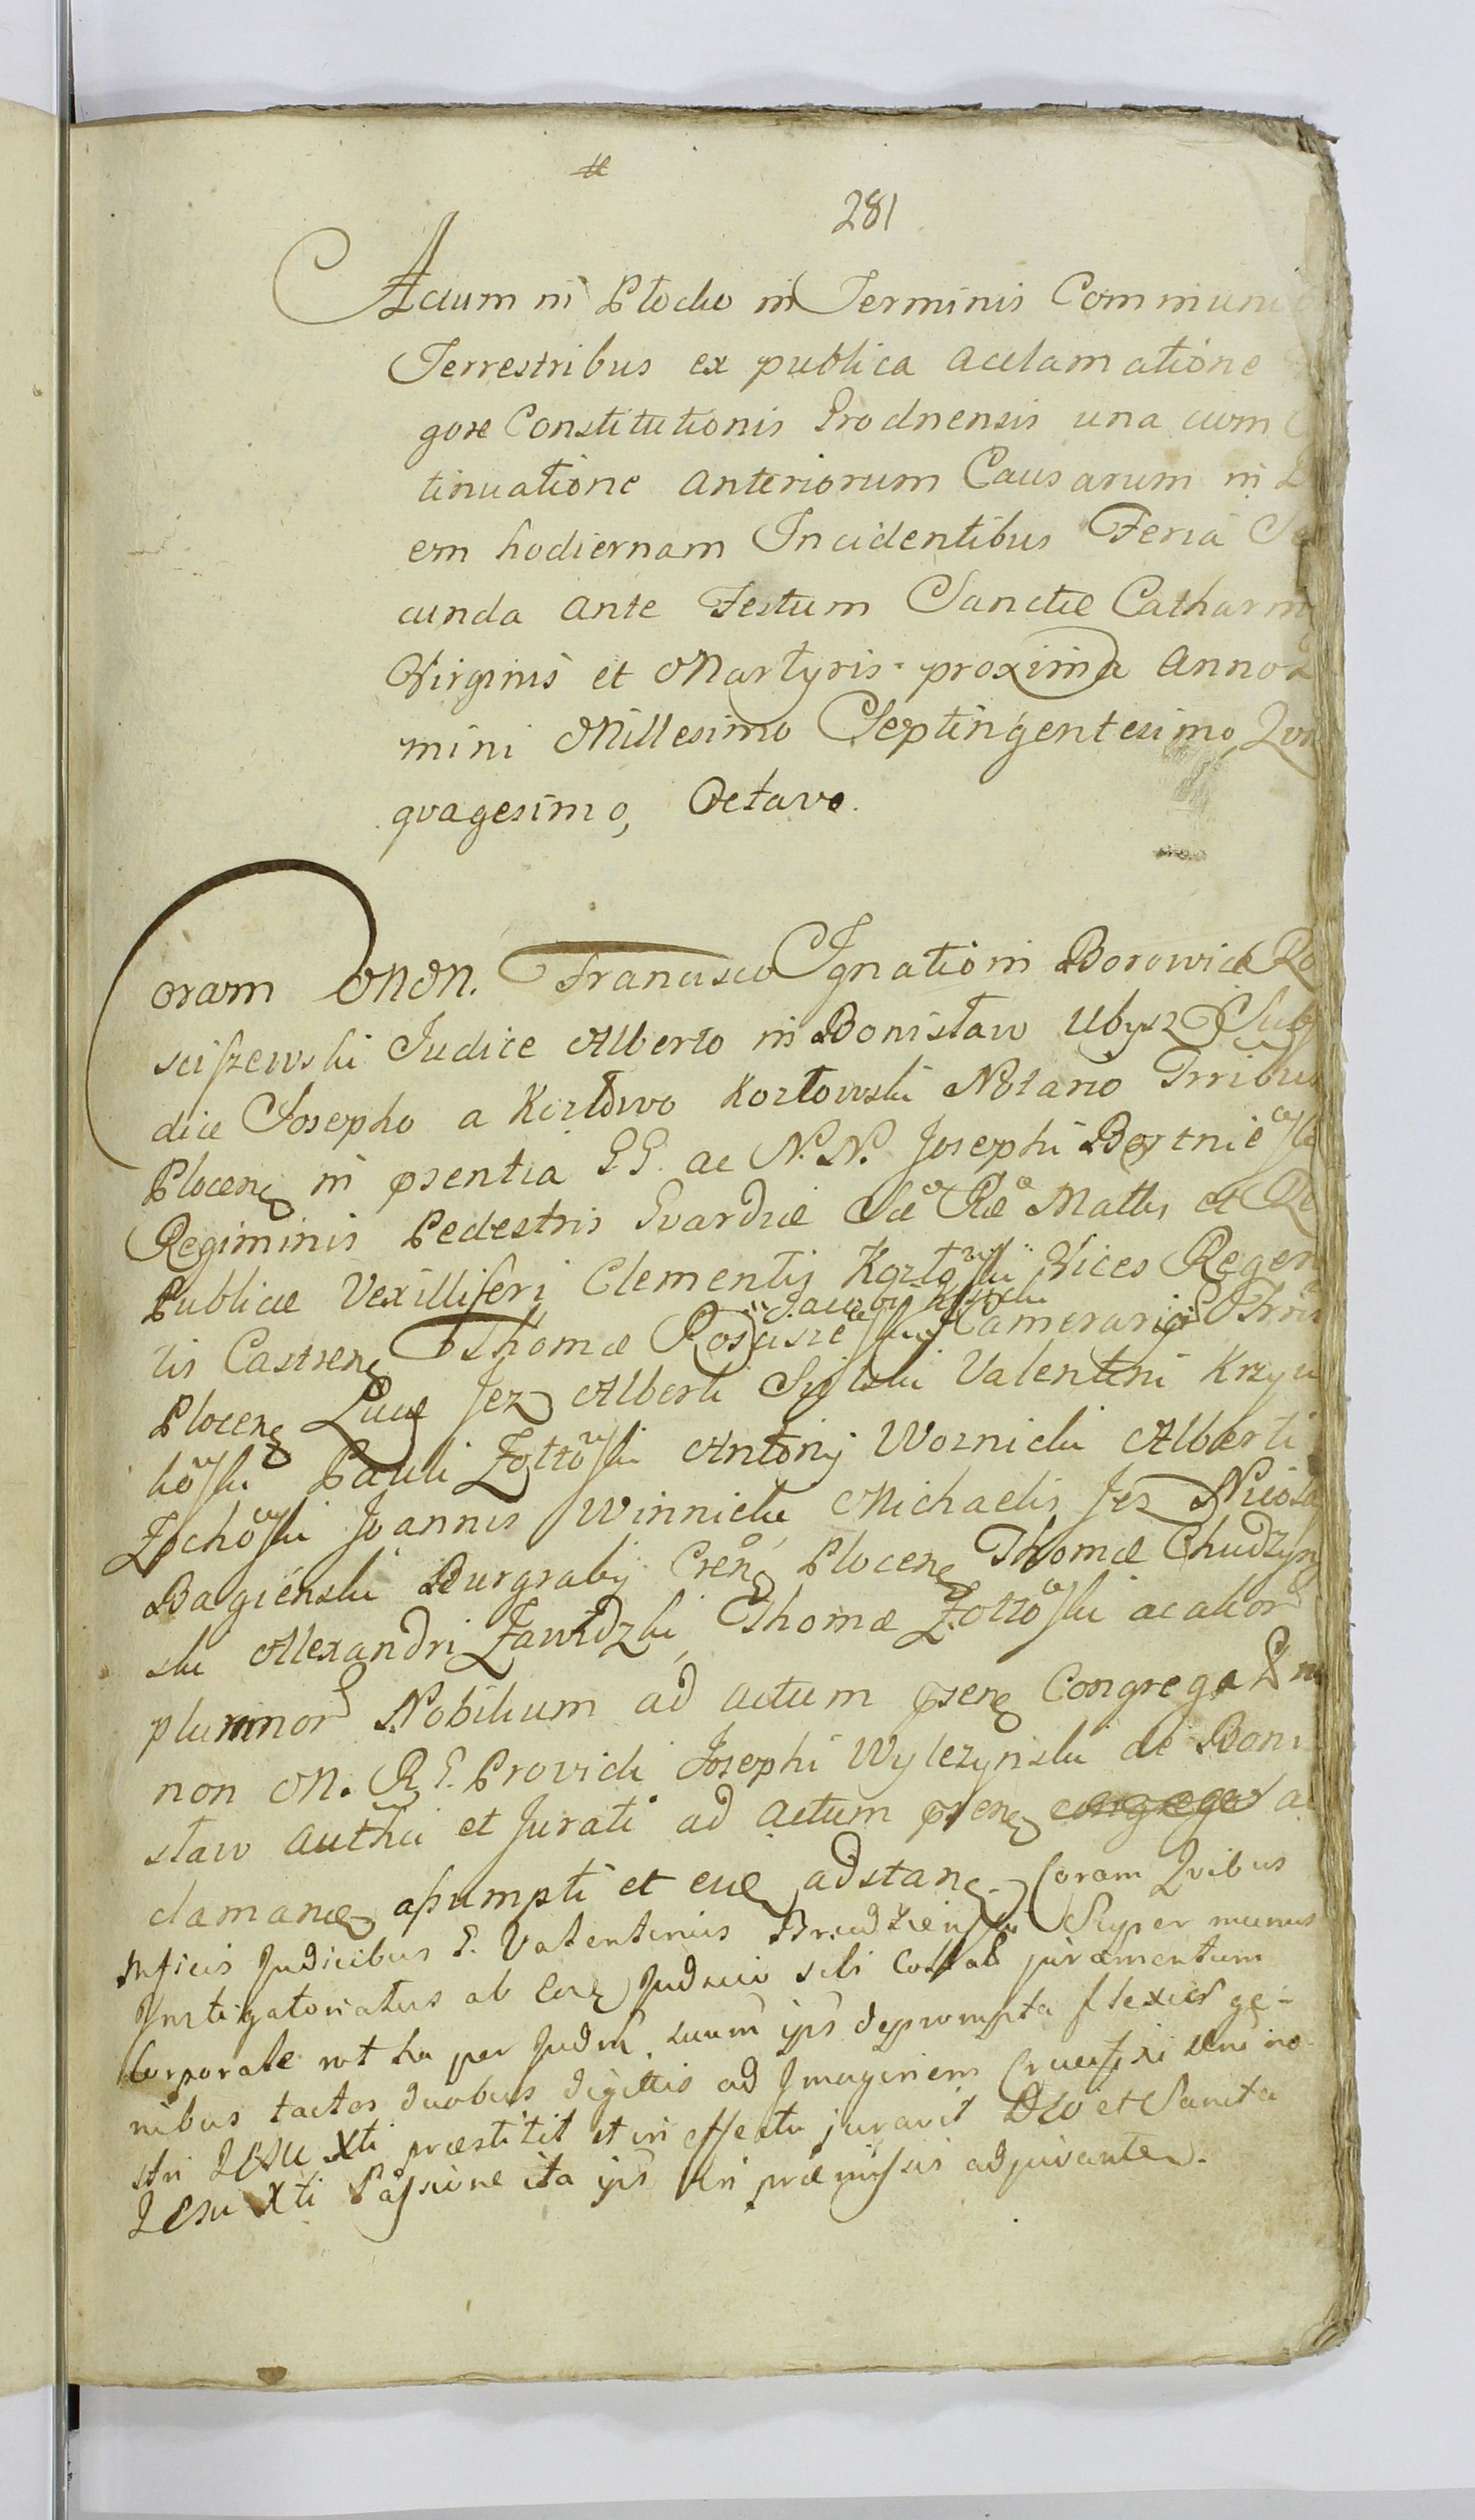 281
Actum in Płocko in Terminis Communi
Terrestribus ex publica acclamatione
gore Constitutionis Grodnensis una cum
tinuatione anteriorum Causarum in
em hodiernam Incidentibus Feria Se
cunda ante Festum Sanctæ Catharin
Virginis et Martyris proxima Anno
mini Millesimo Septingentesimo Qvin
qvagesimo, Octavo.
Coram MM. Francisco Ignatio in Borowice Ro
sciszewski Judice Alberto in Bonisław Ubysz Subju
dice Josepho a Kozłowo Kozłowski Notario Trribus
Plocen in psentia GG. ac N.N. Josephi
Regiminis Pedestris Gvardiæ Sæ Ræ Mattis et Re
Publicæ Vexilliferi Clementis Kozłowski Vices Regen
Jacobi
tis Castren Thomæ Camerarior
Plocen Lucæ Jeż Alberti Valentini Krzyw
kowski Pauli Żołtowski Antonij Woznicki Alberti
Zochowski Joannis Winnicki Michaelis Jeż Nicolai
Bagieński Burgrabij Cren Plocen Thomæ Chudzyn
ski Alexandri Zawidzki Thomæ Żołtowski ac alior
plurimor Nobilium ad actum psen Congregat
non M. R. G. Providi Josephi Wylezynski de Boni
sław authci et Jurati ad actum psen ac
clamanæ assumpti et eue adstan. Coram Qvibus
Officii Judicibus G. Valentinus Super munus
Instigatoriatus ab Eor Judicio sibi juramentum
Corporale rot ha per suum ips deprompta flexis ge-
nibus tactos duobus digitis ad Imaginem Crucifixi
stri JESU Xti præstitit et in effectu juravit DEO et Sancta
JESU Xti Passione ita ips in præmissis adjuvante.